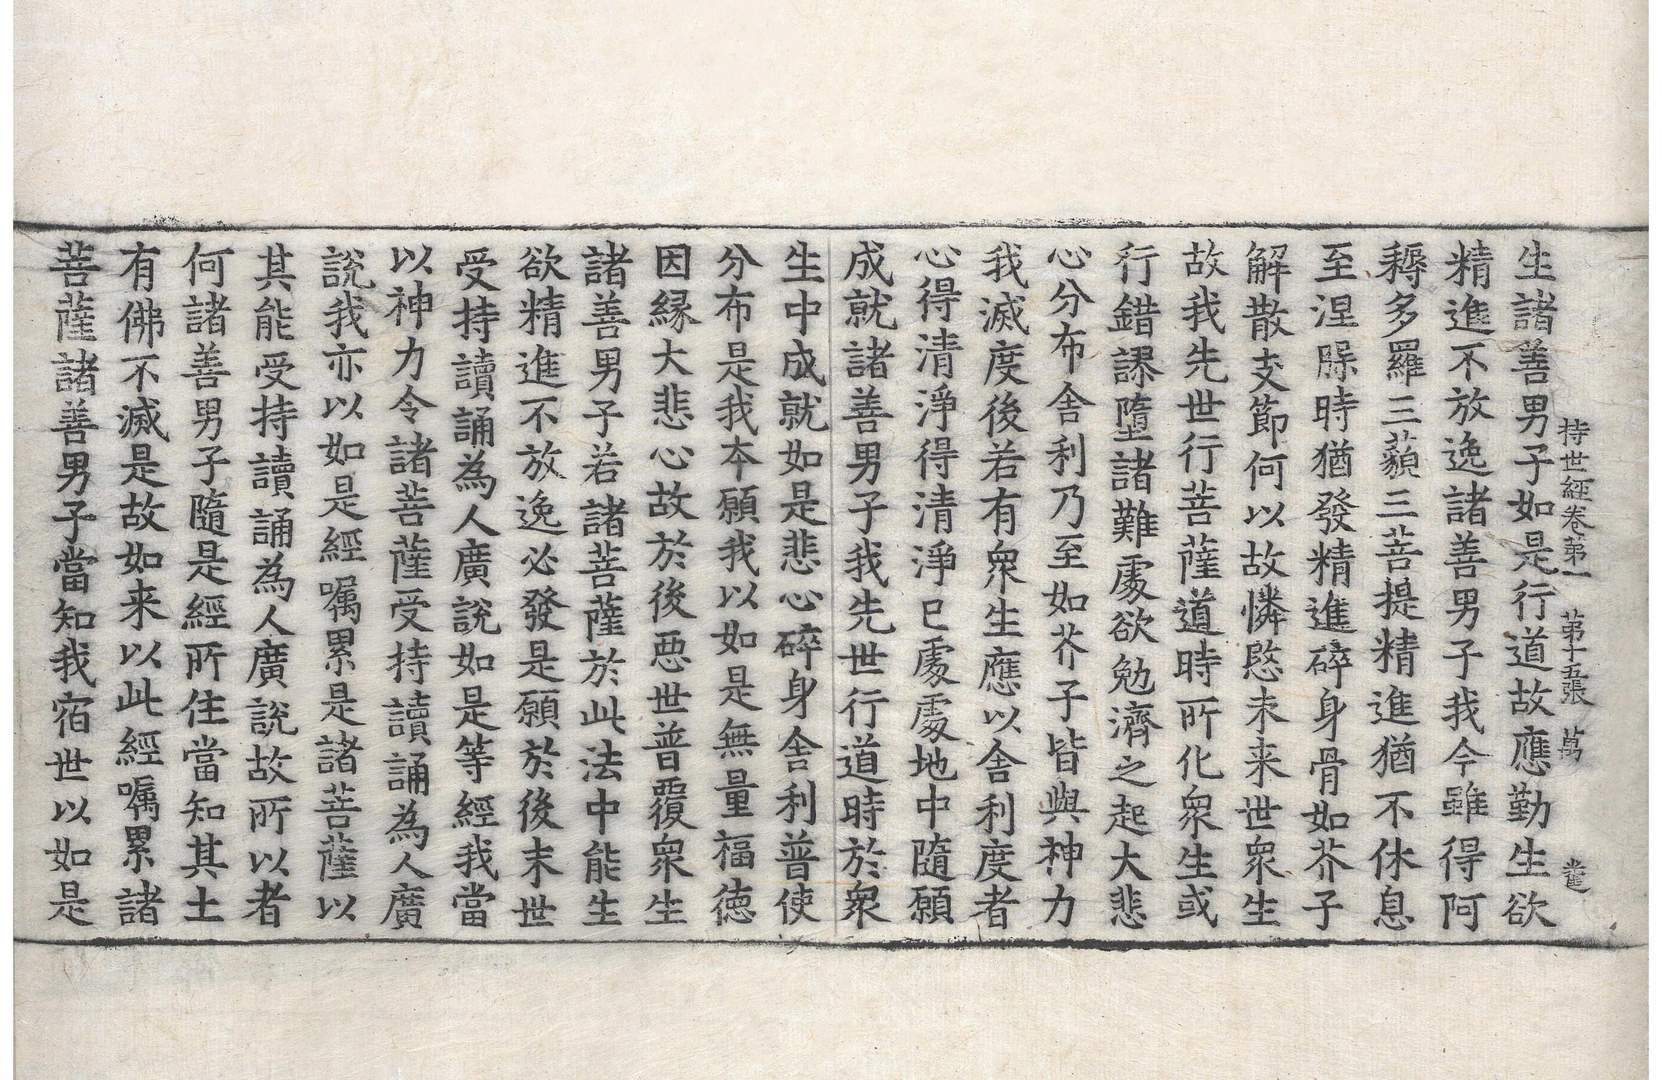 持世經卷第一 第十五張 萬
生諸善男子如是行道故應勤生欲
精進不放逸諸善男子我今雖得阿
耨多羅三藐三菩提精進猶不休息
至涅槃時猶發精進碎身骨如芥子
解散支節何以故憐愍未来世衆生
故我先世行菩薩道時所化衆生或
行錯謬墮諸難處欲勉濟之起大悲
心分布舍利乃至如芥子皆與神力
我滅度後若有衆生應以舍利度者
心得清淨得清淨已處處地中隨願
成就諸善男子我先世行道時於衆
生中成就如是悲心碎身舍利普使
分布是我本願我以如是無量福德
因緣大悲心故於後惡世普覆衆生
諸善男子若諸菩薩於此法中能生
欲精進不放逸必發是願於後末世
受持讀誦為人廣說如是等經我當
以神力令諸菩薩受持讀誦為人廣
說我亦以如是經嘱累是諸菩薩以
其能受持讀誦為人廣說故所以者
何諸善男子隨是經所住當知其土
有佛不滅是故如来以此經嘱累諸
菩薩諸善男子當知我宿世以如是